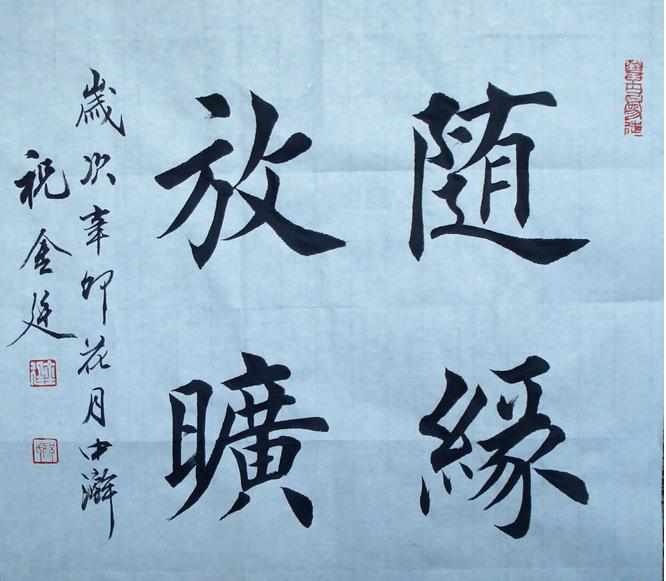 随缘
放曠
歳次辛卯花月中澣
祝金廷